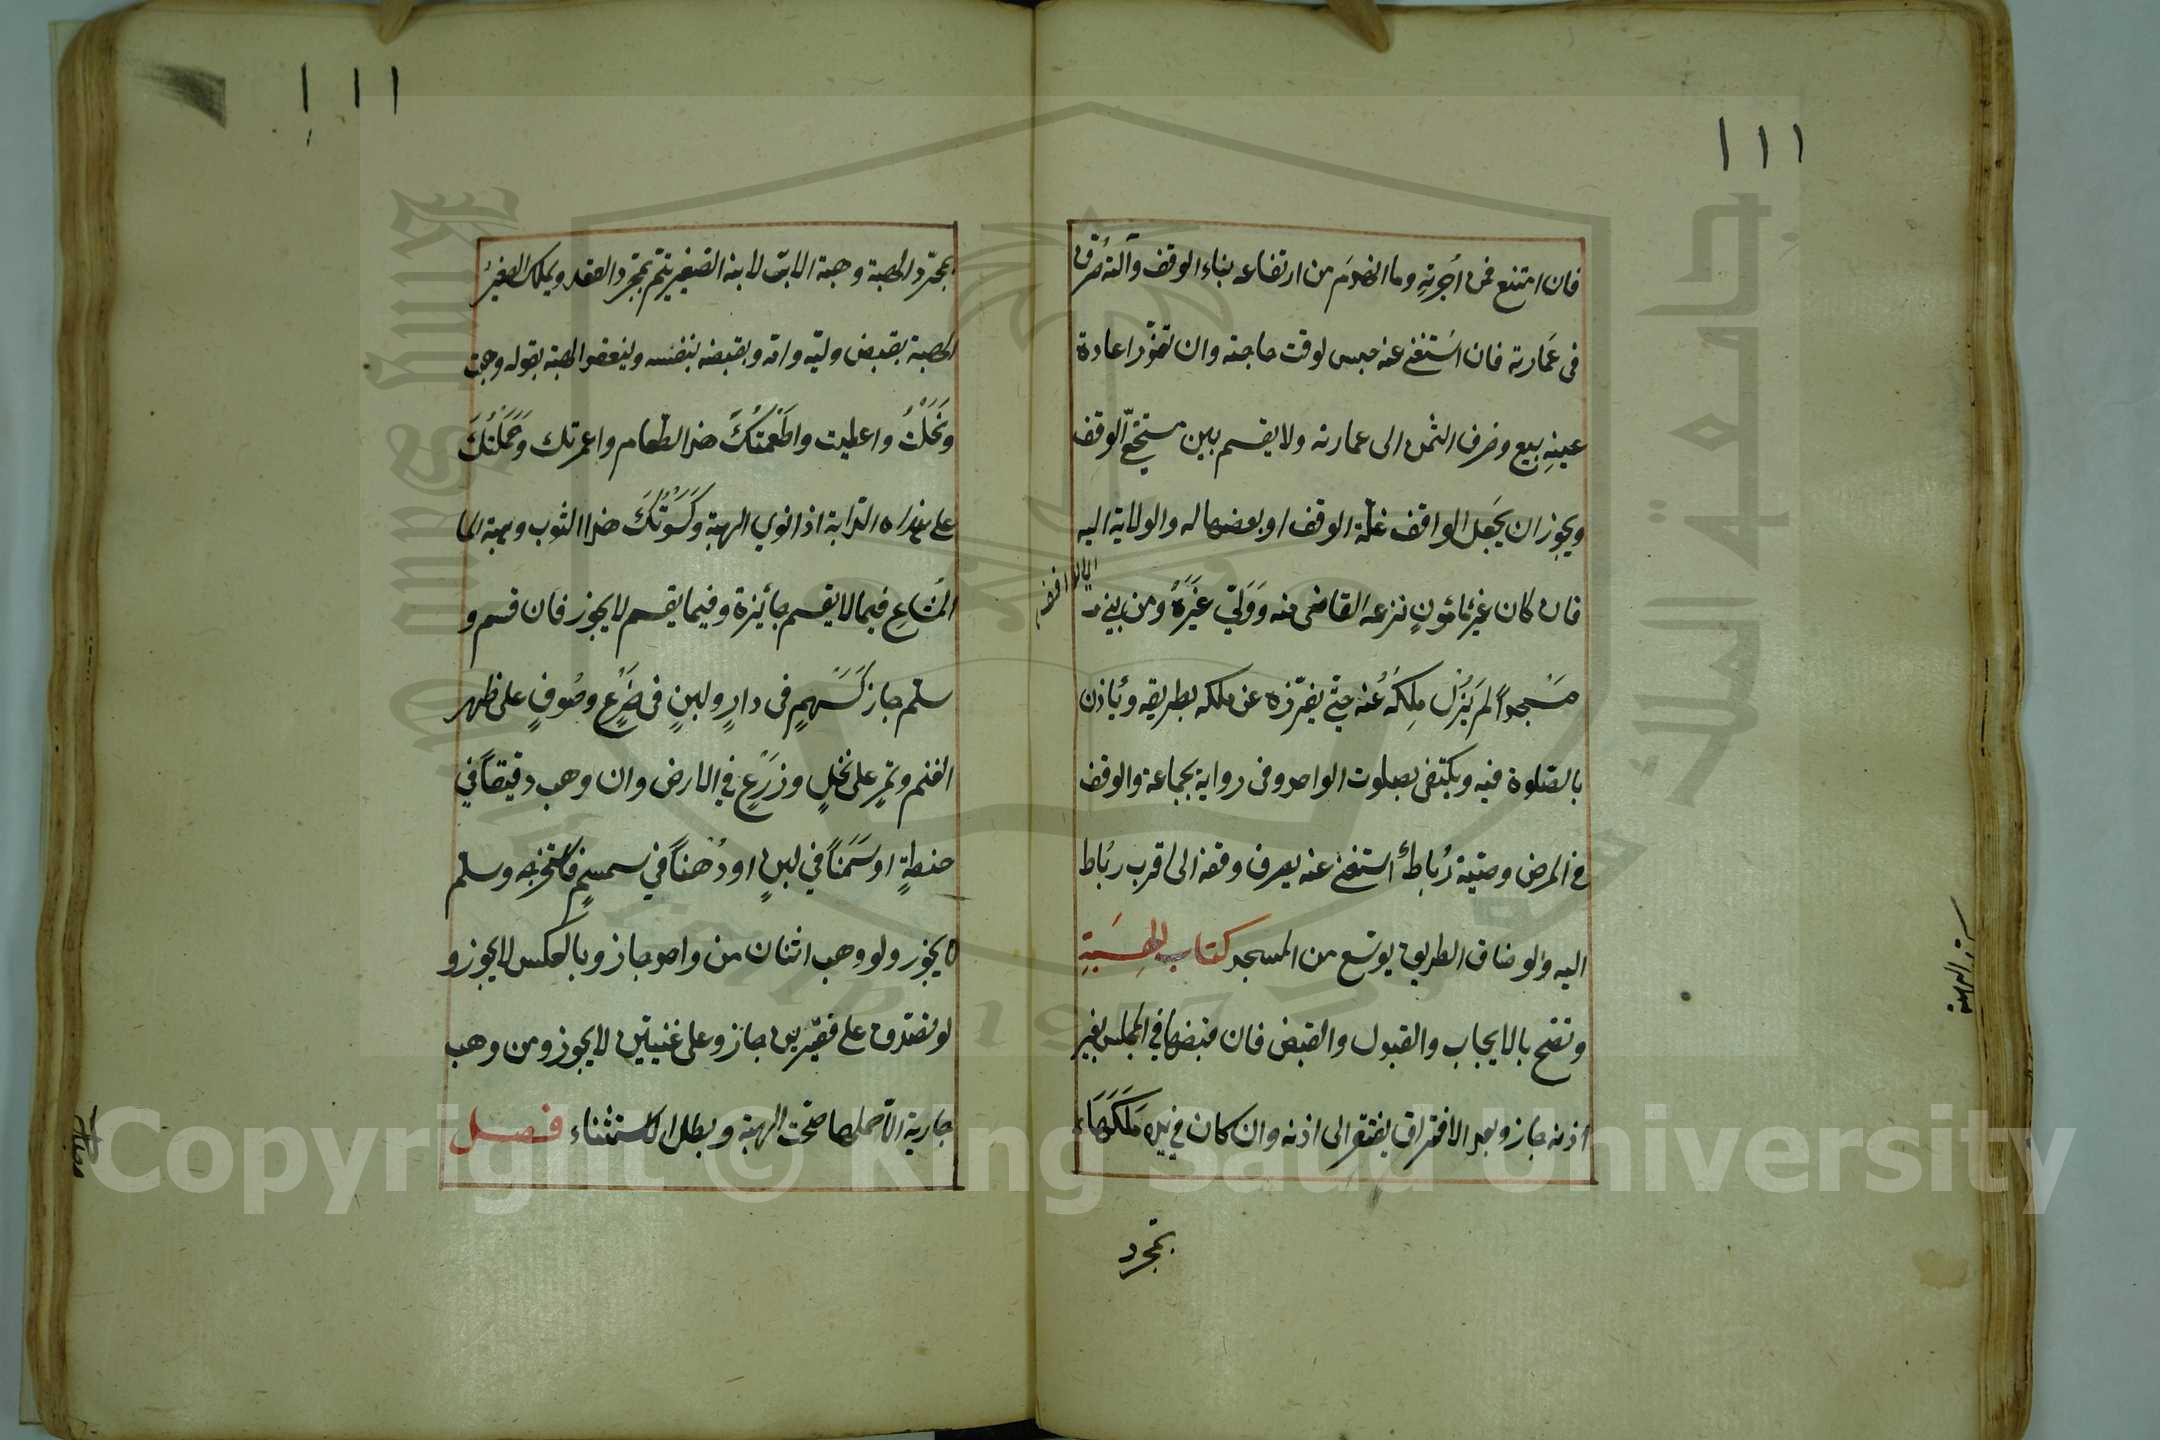 ١١١
فان امتنع فمن اُجرتِهِ وما انهدَمَ من ارتفاعه بناء الوقف وآلته صُرِف
فى عَمَارته فان اسْتغنى عنه حبس لوقت حاجته وان تعذّر اعادة
عينِهِ بيع وصرف الثمن الى عمارته ولا يقسم بين مستحقّ الوقف
ويجوز ان يَجعل الواقف غلّة الوقف او بعضها له والولاية اليه
فان كان غير مَامُونٍ نزعه القاضى منه وَوَلّى غَيرَهُ ومن بنى
مَسْجداً لم يَزُل مِلكَهُ عُنه حتّى يفرّزه عن ملكه بطريقه ويُاذن
بالصّلوة فيه ويكتفى بصلوت الواحد وفى رواية بجماعة والوقف
فى المرض وصيّة رُباط استغنى عنه يصرف وقفه الى اقرب ربُاط
اليه ولو ضاق الطريق يوسّع من المسجد كتاب الهِبَةِ
وتصّح بالايجاب والقبول والقبض فان قبضها فى المجلس بغير
اذنه جاز وبعد الافتراق يفتقر الى اذنه وان كان فى يده مَلَكَهَا
بمجرد
١١١
بمجرّد الهبة وهبة الابّ لابنه الصّغير يتم بمجرّد العقد ويملك الصغيرُ
الهبة بقبض وليّه وامّه وبقبضه بنفسه وينعقد الهبة بقوله وهبت
ونَحَلْتُ واعطيت واطْعمْتُكَ هذا الطّعام واعمرتك وَحَمَلْتُكَ
على هذه الدّابة اذا نوى الهبة وكَسَوْتُكَ هذا الثوب وهبة
المُشاعِ فيما لا يقسم جائزة وفيما يقسم لا يجوز فان قسم و
سلّم جاز كَسَهمٍ فى دارٍ ولبنٍ فى ضَرْعٍ وصُوفٍ على ظهر
الغنم وتمرٍ على نخلٍ وزَرْعٍ فى الارض وان وهب دقيقاً فى
حنطةٍ او سَمَناً فى لبنٍ او دُهناً فى سمسمٍ فاستخرجه وسلّم
لا يجوز ولو وهب اثنان من واحد جاز وبالعكس لا يجوز و
لو تصّدق على فقيرين جاز وعلى غنيّين لا يجوز ومن وهب
جارية الّا حملها صحّت الهبة وبطل الاستثناء فصل
جامعة الملك سعود
King Saud University
1957
Copyright © King Saud University